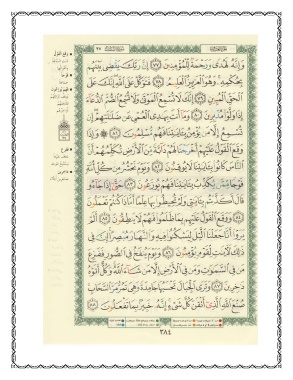 وَإِنَّهُۥ لَهُدًى وَرَحْمَةٌ لِّلْمُؤْمِنِينَ ﴿٧٧﴾ إِنَّ رَبَّكَ يَقْضِى بَيْنَهُم
بِحُكْمِهِۦ وَهُوَ ٱلْعَزِيزُ ٱلْعَلِيمُ ﴿٧٨﴾ فَتَوَكَّلْ عَلَى ٱللَّهِ إِنَّكَ عَلَى
ٱلْحَقِّ ٱلْمُبِينِ ﴿٧٩﴾ إِنَّكَ لَا تُسْمِعُ ٱلْمَوْتَىٰ وَلَا تُسْمِعُ ٱلصُّمَّ ٱلدُّعَآءَ
إِذَا وَلَّوْا۟ مُدْبِرِينَ ﴿٨٠﴾ وَمَآ أَنتَ بِهَـٰدِى ٱلْعُمْىِ عَن ضَلَـٰلَتِهِمْ إِن
تُسْمِعُ إِلَّا مَن يُؤْمِنُ بِـَٔايَـٰتِنَا فَهُم مُّسْلِمُونَ ﴿٨١﴾ ۞ وَإِذَا
وَقَعَ ٱلْقَوْلُ عَلَيْهِمْ أَخْرَجْنَا لَهُمْ دَآبَّةً مِّنَ ٱلْأَرْضِ تُكَلِّمُهُمْ أَنَّ
ٱلنَّاسَ كَانُوا۟ بِـَٔايَـٰتِنَا لَا يُوقِنُونَ ﴿٨٢﴾ وَيَوْمَ نَحْشُرُ مِن كُلِّ أُمَّةٍ
فَوْجًا مِّمَّن يُكَذِّبُ بِـَٔايَـٰتِنَا فَهُمْ يُوزَعُونَ ﴿٨٣﴾ حَتَّىٰٓ إِذَا جَآءُو
قَالَ أَكَذَّبْتُم بِـَٔايَـٰتِى وَلَمْ تُحِيطُوا۟ بِهَا عِلْمًا أَمَّاذَا كُنتُمْ تَعْمَلُونَ
﴿٨٤﴾ وَوَقَعَ ٱلْقَوْلُ عَلَيْهِم بِمَا ظَلَمُوا۟ فَهُمْ لَا يَنطِقُونَ ﴿٨٥﴾ أَلَمْ
يَرَوْا۟ أَنَّا جَعَلْنَا ٱلَّيْلَ لِيَسْكُنُوا۟ فِيهِ وَٱلنَّهَارَ مُبْصِرًا إِنَّ فِى
ذَٰلِكَ لَـَٔايَـٰتٍ لِّقَوْمٍ يُؤْمِنُونَ ﴿٨٦﴾ وَيَوْمَ يُنفَخُ فِى ٱلصُّورِ فَفَزِعَ
مَن فِى ٱلسَّمَـٰوَٰتِ وَمَن فِى ٱلْأَرْضِ إِلَّا مَن شَآءَ ٱللَّهُ وَكُلٌّ أَتَوْهُ
دَٰخِرِينَ ﴿٨٧﴾ وَتَرَى ٱلْجِبَالَ تَحْسَبُهَا جَامِدَةً وَهِىَ تَمُرُّ مَرَّ ٱلسَّحَابِ
صُنْعَ ٱللَّهِ ٱلَّذِىٓ أَتْقَنَ كُلَّ شَىْءٍ إِنَّهُۥ خَبِيرٌۢ بِمَا تَفْعَلُونَ ﴿٨٨﴾
٣٨٤